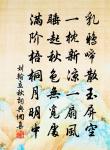 乳鴉啼散玉屏空
一枕新涼一扇風
睡起秋色無覓處
滿階梧桐月明中
劉翰立秋詩典網書